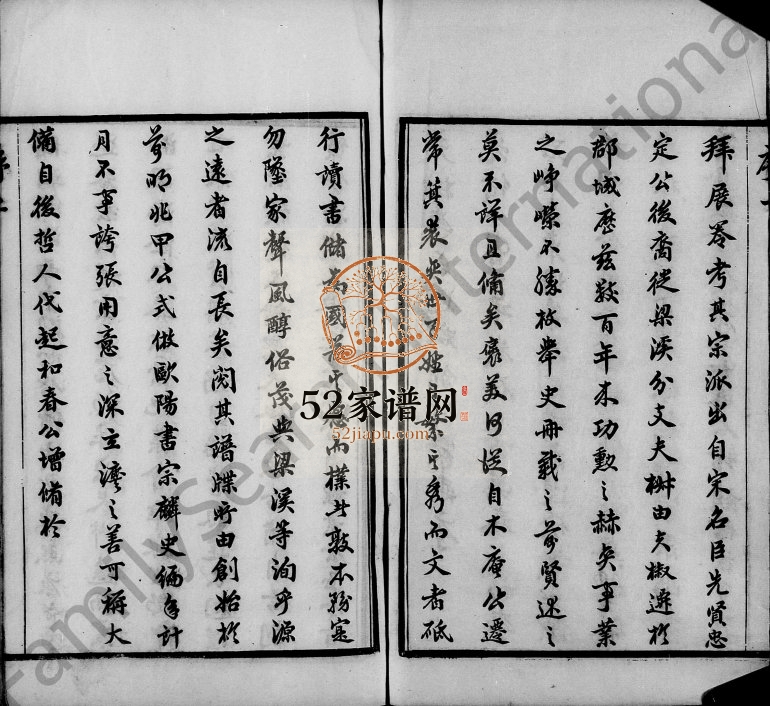 拜展畧考其宗派出自宋名臣先賢忠
定公後裔從梁溪分支夫椒由夫椒遷於
郡城歷茲數百年來功勳之赫奕事業
之崢嶸不勝枚舉史冊載之前賢述之
莫不詳且備矣褒美何從自木庵公遷
常其裘
秀而文者砥
行讀書儲為國
而樸者敦本務寔
勿墜家聲風醇俗茂與梁溪等洵乎源
之遠者流自長矣閱其譜牒昉由創始於
前明兆甲公式倣歐陽書宗麟史編年計
月不事誇張用意之深立灋之善可稱大
備自後哲人代起和春公增脩於
52家谱网
52jiapu.com
FamilySearch International